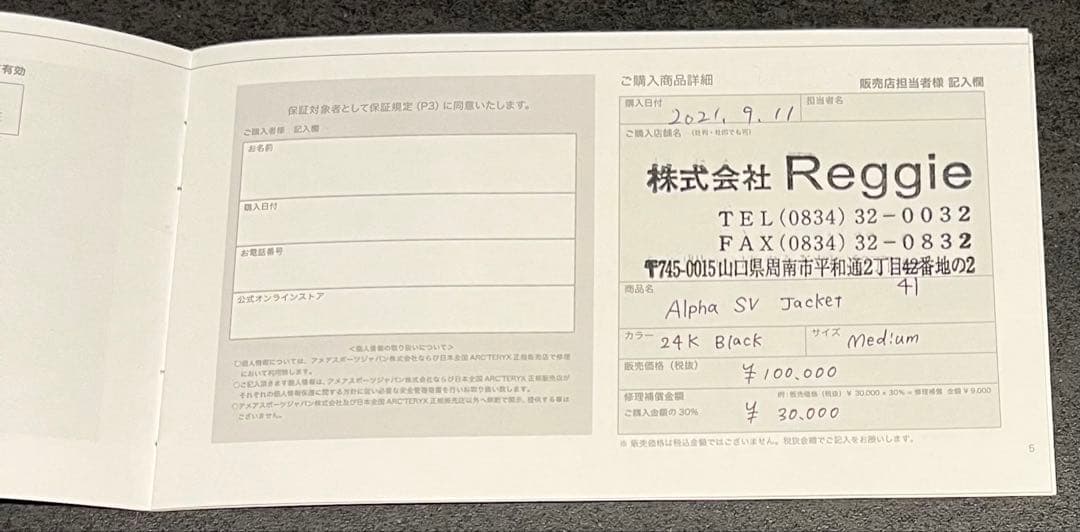 有効
保証対象者として保証規定（P3）に同意いたします。
ご購入者様 記入欄
お名前
購入日付
お電話番号
公式オンラインストア
＜個人情報の取り扱いについて＞
○個人情報については、アメアスポーツジャパン株式会社ならび日本全国 ARC'TERYX 正規販売店で修理
において利用致します。
○ご記入頂きます個人情報は、アメアスポーツジャパン株式会社ならび日本全国 ARC'TERYX 正規販売店が
それぞれの個人情報保護に関する方針に従い必要な安全管理措置を行いお取り扱い致します。
○アメアスポーツジャパン株式会社及び日本全国 ARC'TERYX 正規販売店以外へ無断で開示、提供する事は
ございません。
ご購入商品詳細
販売店担当者様 記入欄
購入日付
2021. 9. 11
担当者名
ご購入店舗名 （社判・社印でも可）
株式会社 Reggie
TEL（0834）32-0032
FAX（0834）32-0832
〒745-0015山口県周南市平和通2丁目42番地の2
41
商品名
Alpha SV Jacket
カラー
24K Black
サイズ
Medium
販売価格（税抜）
¥100,000
修理補償金額
例：販売価格（税抜）¥30,000 x 30% = 修理補償 金額 ¥9,000
ご購入金額の30%
¥ 30,000
※ 販売価格は税込金額ではございません。税抜金額でご記入をお願いします。
5